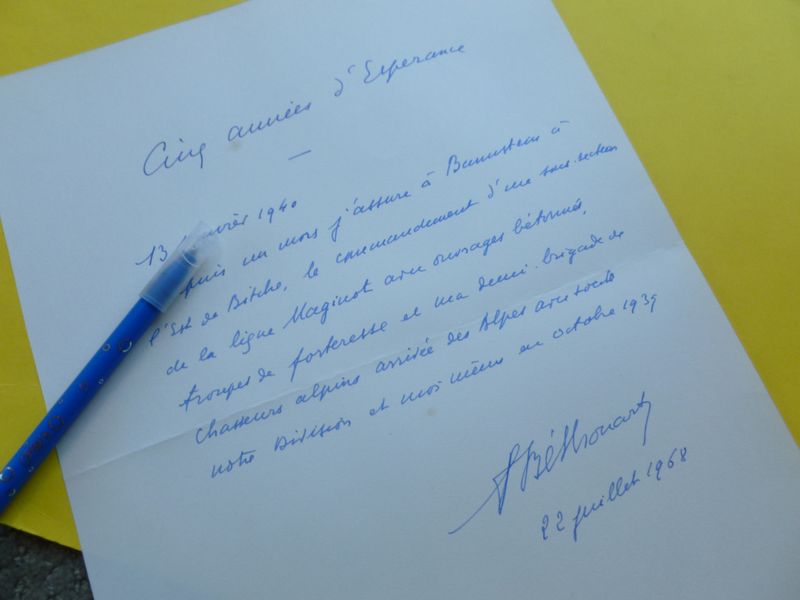 Cinq années d'Espérance
—
13 février 1940
Depuis un mois j'assure à Bannstein à
l'Est de Bitche, le commandement d'une sous-secteur
de la ligne Maginot avec ouvrages bétonnés,
troupes de forteresse et ma demi-brigade de
Chasseurs alpins arrivée des Alpes avec toute
notre Division et moi même en octobre 1939
Béthouart
22 juillet 1968